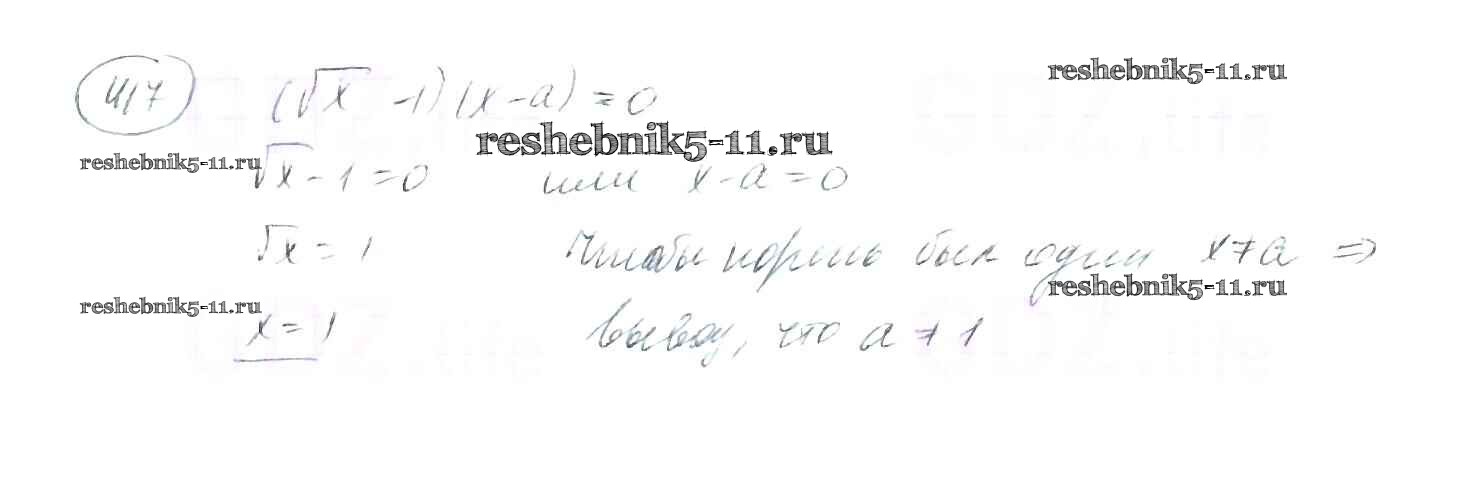 417 (√x - 1)(x - a) = 0
reshebnik5-11.ru
reshebnik5-11.ru
reshebnik5-11.ru
√x - 1 = 0 или x - a = 0
√x = 1 Чтобы корень был один x ≠ a ⇒
reshebnik5-11.ru
reshebnik5-11.ru
x = 1 вывод, что a ≠ 1